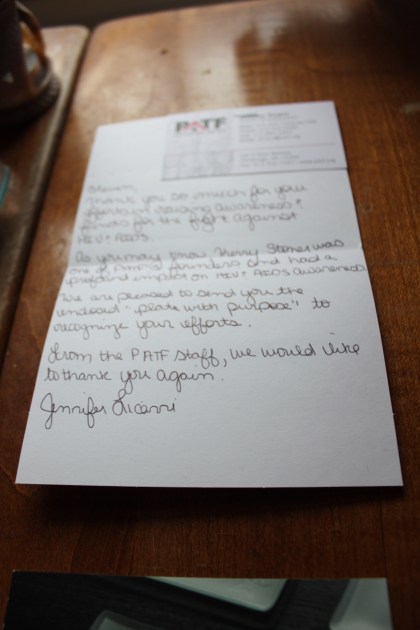 PATF
Steven,
Thank you so much for your
efforts in raising awareness &
funds for the fight against
HIV & AIDS.
As you may know Kerry Stoner was
one of PATF's founders and had a
profound impact on HIV & AIDS awareness
We are pleased to send you the
enclosed "plate with purpose" to
recognize your efforts.
From the PATF staff, we would like
to thank you again.
Jennifer